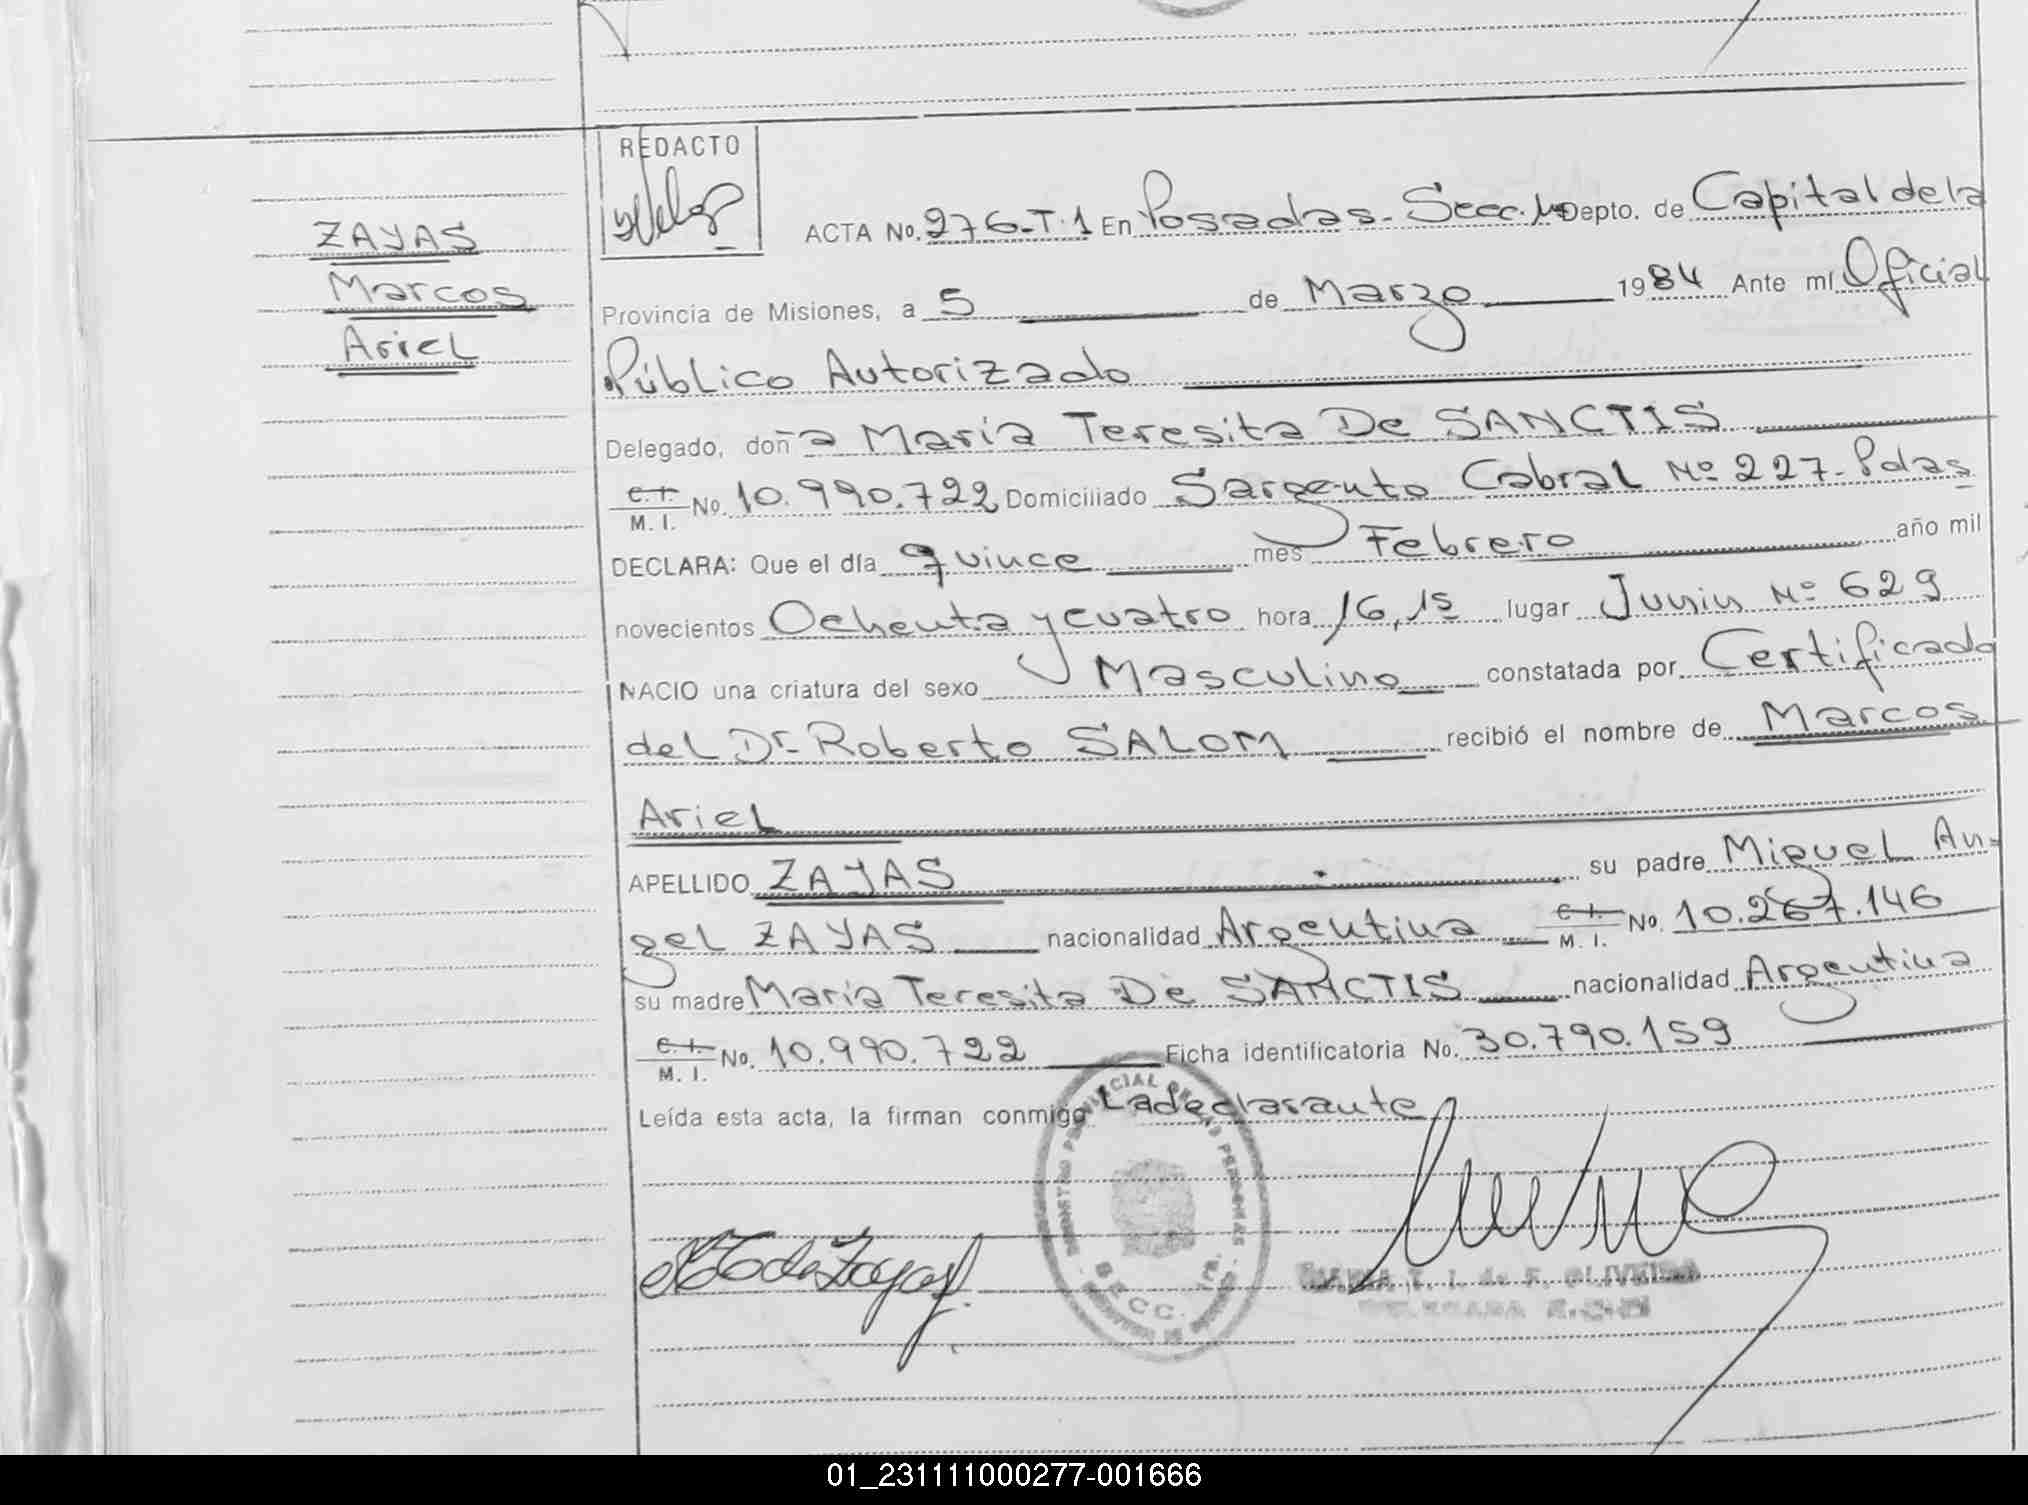 ZAYAS
Marcos
Ariel
REDACTO
ACTA No. 276-T.1 En Posadas- Secc. Depto. de Capital de la
Provincia de Misiones, a 5 de Marzo 1984 Ante mí Oficial
Público Autorizado
Delegado, doña María Teresita De SANCTIS
C.I. M. I. No. 10.990.722 Domiciliado Sargento Cabral Nº 227- Pdas
DECLARA: Que el día quince mes Febrero año mil
novecientos Ochenta y cuatro hora 16,15 lugar Junin Nº 629
NACIO una criatura del sexo Masculino constatada por Certificado
del Dr. Roberto SALOM recibió el nombre de Marcos
Ariel
APELLIDO ZAYAS su padre Miguel An-
gel ZAYAS nacionalidad Argentina C.I. M. I. No. 10.267.146
su madre María Teresita De SANCTIS nacionalidad Argentina
C.I. M. I. No. 10.990.722 Ficha identificatoria No. 30.790.159
Leída esta acta, la firman conmigo La declarante
de Zayas
REGISTRO PROVINCIAL DE LAS PERSONAS
MARIA T. I. de F. OLIVEIRA
DELEGADA
01_231111000277-001666